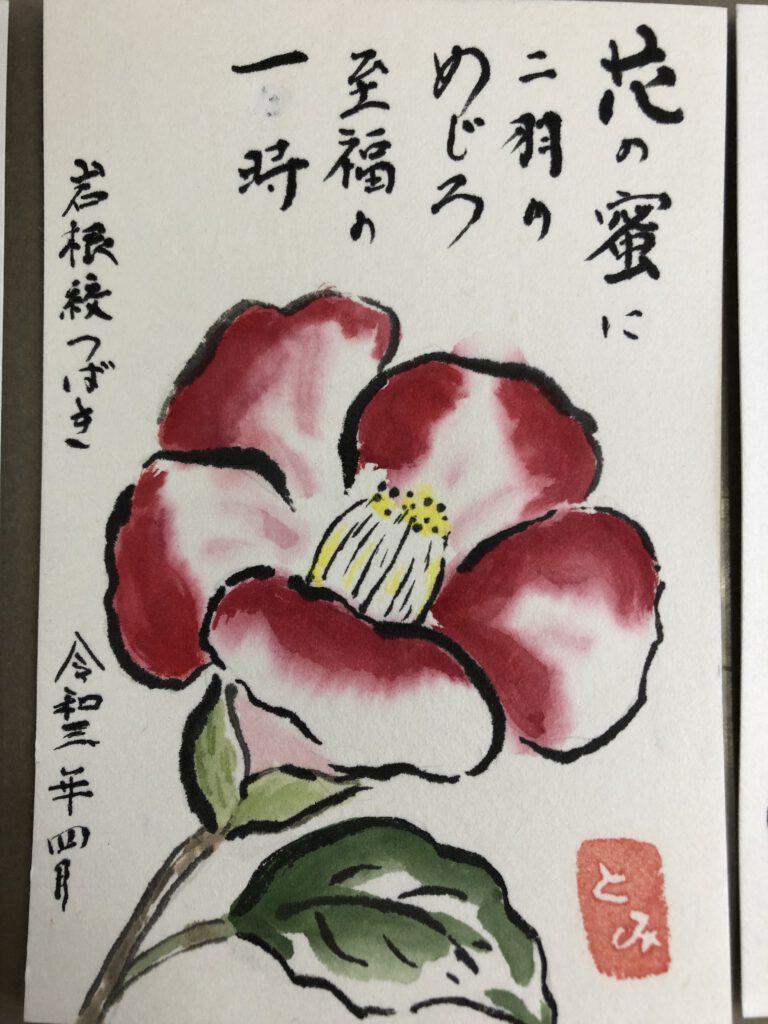 花の蜜に
二羽の
めじろ
至福の
一時
岩根絞つばき
令和三年四月
とみ